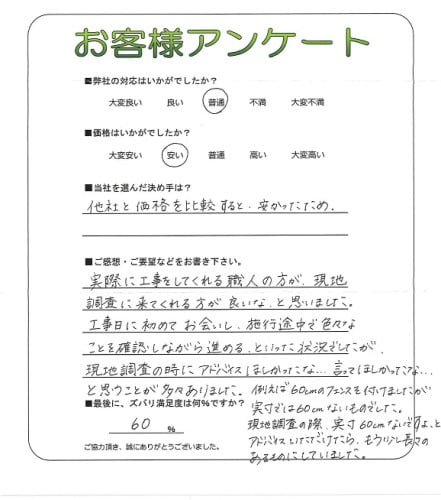 お客様アンケート
■弊社の対応はいかがでしたか？
大変良い　良い　普通　不満　大変不満
■価格はいかがでしたか？
大変安い　安い　普通　高い　大変高い
■当社を選んだ決め手は？
他社と価格を比較すると、安かったため。
■ご感想・ご要望などをお書き下さい。
実際に工事をしてくれる職人の方が、現地
調査に来てくれる方が良いな、と思いました。
工事日に初めてお会いし、施行途中で色々な
ことを確認しながら進める、といった状況でしたが、
現地調査の時にアドバイスほしかったな…言ってほしかったな…
と思うことが多々ありました。例えば60cmのフェンスを付けましたが
実寸では60cmないものでした。
現地調査の際、実寸60cmないですよ、と
アドバイスいただけたら、もう少し長さの
あるものにしていました。
■最後に、ズバリ満足度は何%ですか？
60 %
ご協力頂き、誠にありがとうございました。